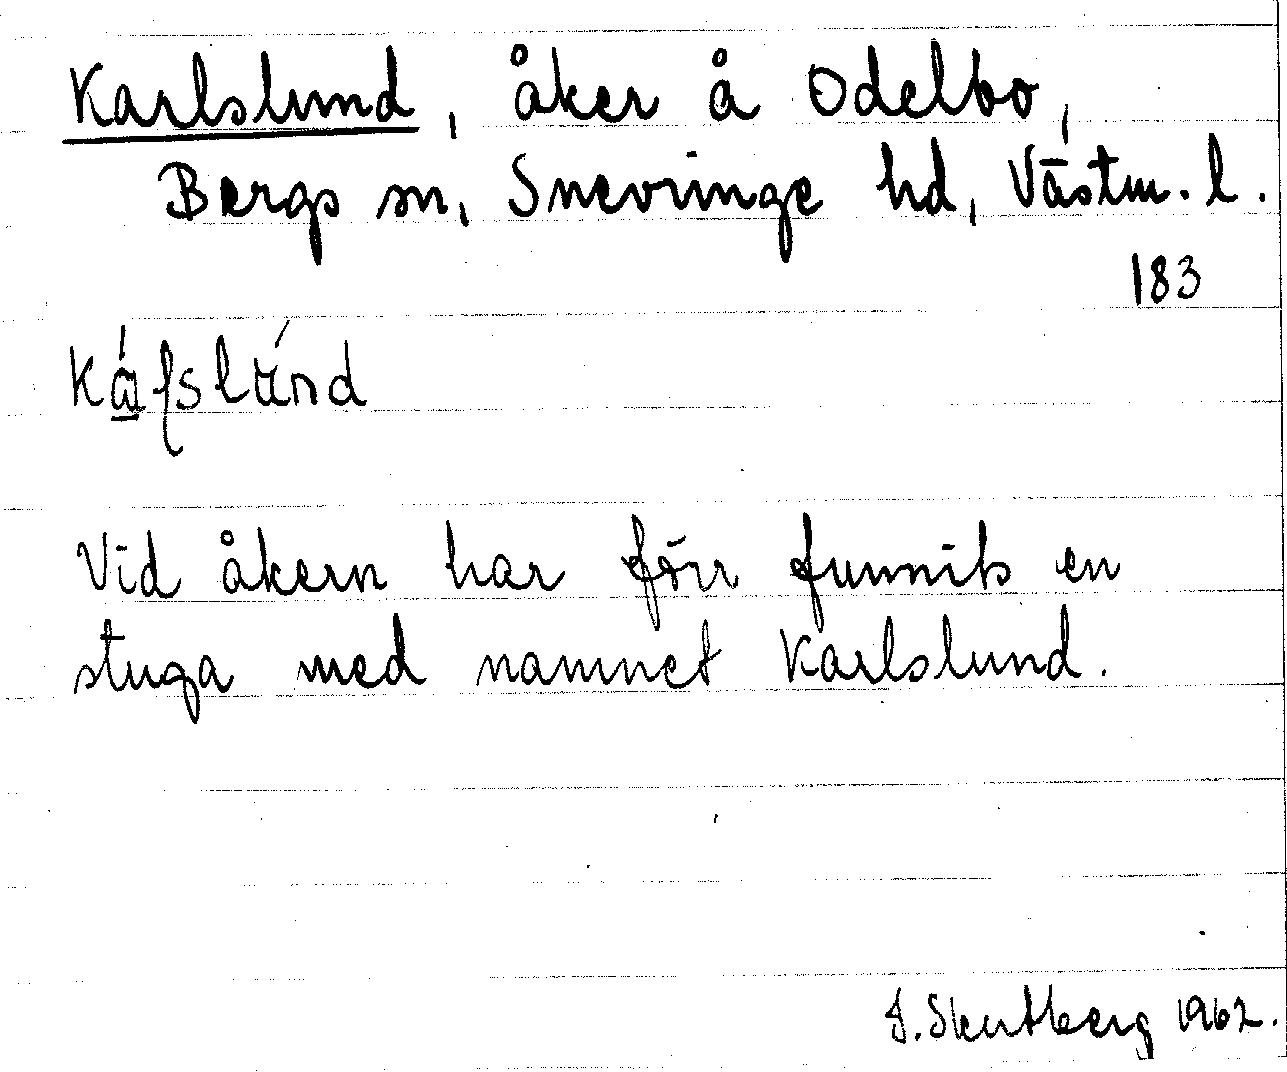 Karlslund, åker å Odelbo,
Bergs sn, Snevringe hd, Västm. l.
183
Vid åkern har förr funnits en
stuga med namnet Karlslund.
1962.